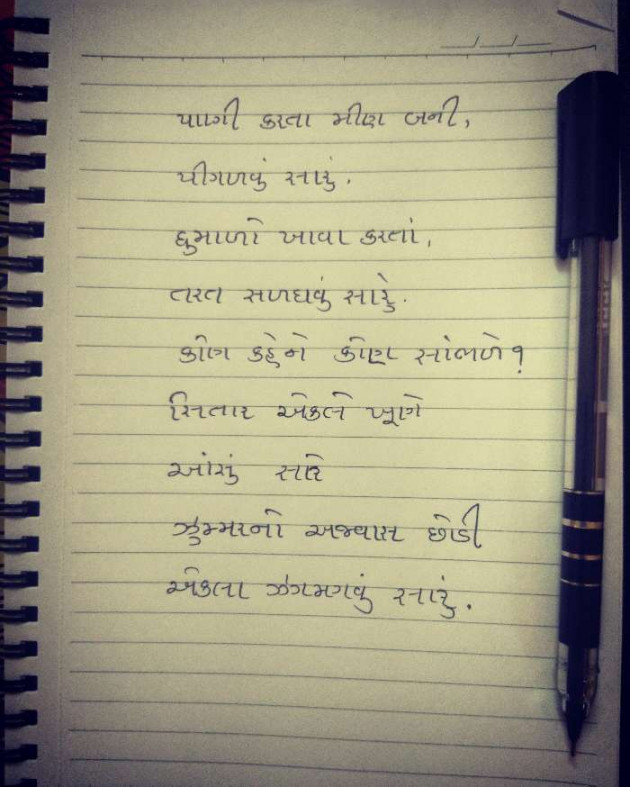 પાણી કરતા મીણ બની,
પીગળવું સારું.
ધુમાળો ખાવા કરતાં,
તરત સળઘવું સારું.
કોણ કહેને કોણ સાંભળે?
સિતાર એકલે ખૂણે
આંસું સારે
ઝુમ્મરનો અજવાસ છોડી
એકલા ઝગમગવું સારું.